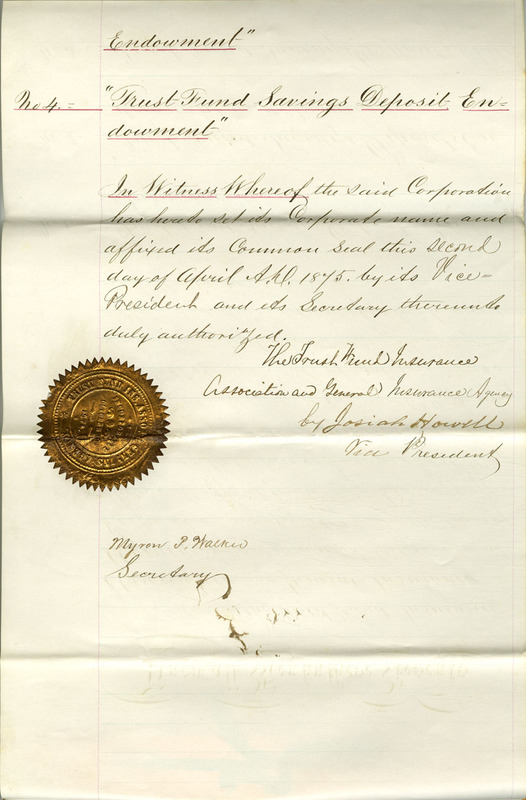 Endowment"
No 4. = "Trust Fund Savings Deposit En=
dowment"
In Witness Whereof the said Corporation
has hereto set its Corporate name and
affixed its Common Seal this second
day of April A.D. 1875. by its Vice=
President and its Secretary thereunto
duly authorized.
The Trust Fund Insurance
Association and General Insurance Agency
by Josiah Howell
Vice President
Myron P. Walker
Secretary